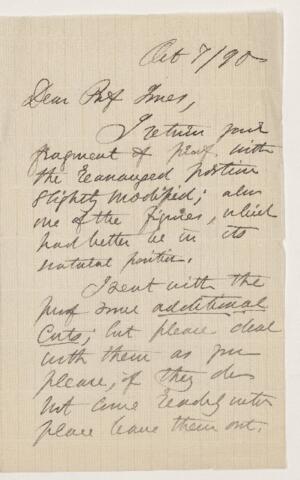 Oct 7/90
Dear Prof Jones,
I return your
fragment of proof with
the rearranged portion
slightly modified; also
one of the figures, which
had better be in its
natural position.
I sent with the
proof some additional
cuts; but please deal
with them as you
please, if they do
not come readily into
place leave them out.